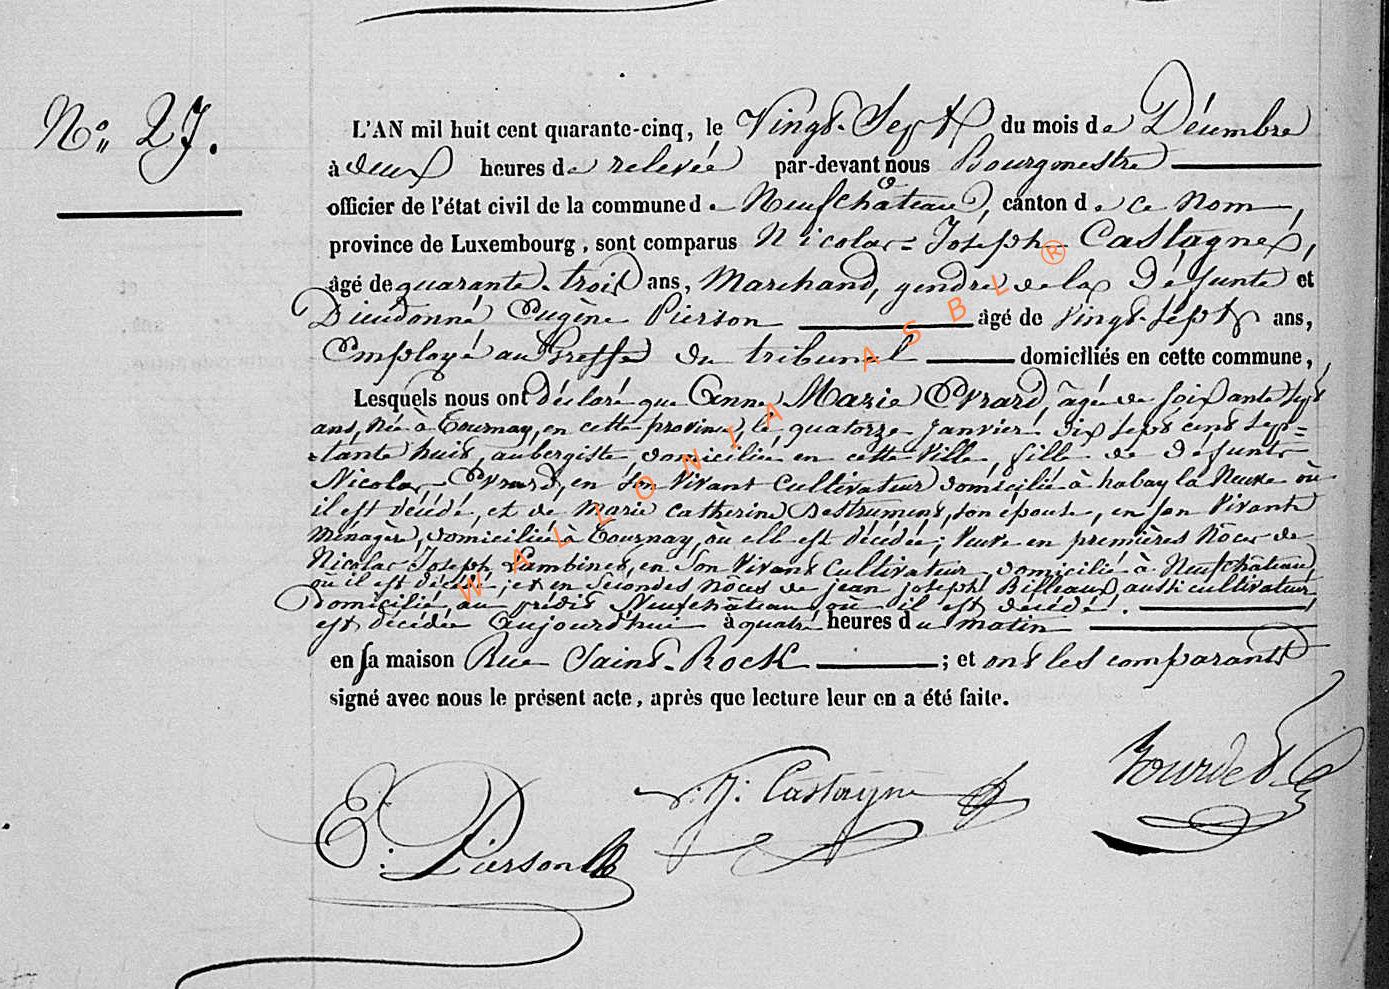 N° 27.
L'AN mil huit cent quarante-cinq, le Vingt-Sept du mois de Décembre
à deux heures de relevée par-devant nous Bourgmestre
officier de l'état civil de la commune de Neufchâteau, canton de ce nom,
province de Luxembourg, sont comparus Nicolas-Joseph Castagne,
âgé de quarante-trois ans, Marchand, gendre de la Défunte et
Dieudonné Eugène Pierson âgé de Vingt-Sept ans,
Employé au Greffe du tribunal domiciliés en cette commune,
Lesquels nous ont déclaré que Anne Marie Evrard, âgée de soixante sept
ans, Née à Tournay, en cette province, le quatorze Janvier dix sept cent sep=
=tante huit, aubergiste domiciliée en cette Ville, fille de défunts
Nicolas Evrard, en son Vivant Cultivateur domicilié à habay la Neuve où
il est décédé, et de Marie Catherine son épouse, en son Vivant
Ménagère, domiciliée à Tournay, où elle est décédée; Veuve en premières Nôces de
Nicolas Joseph Lambinet, en son Vivant Cultivateur domicilié à Neufchâteau
où il est décédé; et en secondes nôces de jean joseph Billeaux, aussi cultivateur
domicilié au prédit Neufchâteau où il est décédé.
est décédée aujourd'hui à quatre heures du matin
en sa maison Rue Saint-Rock ; et ont les comparants
signé avec nous le présent acte, après que lecture leur en a été faite.
E. Pierson
N. J. Castagne
Tourdet
WALLONIA ASBL ®